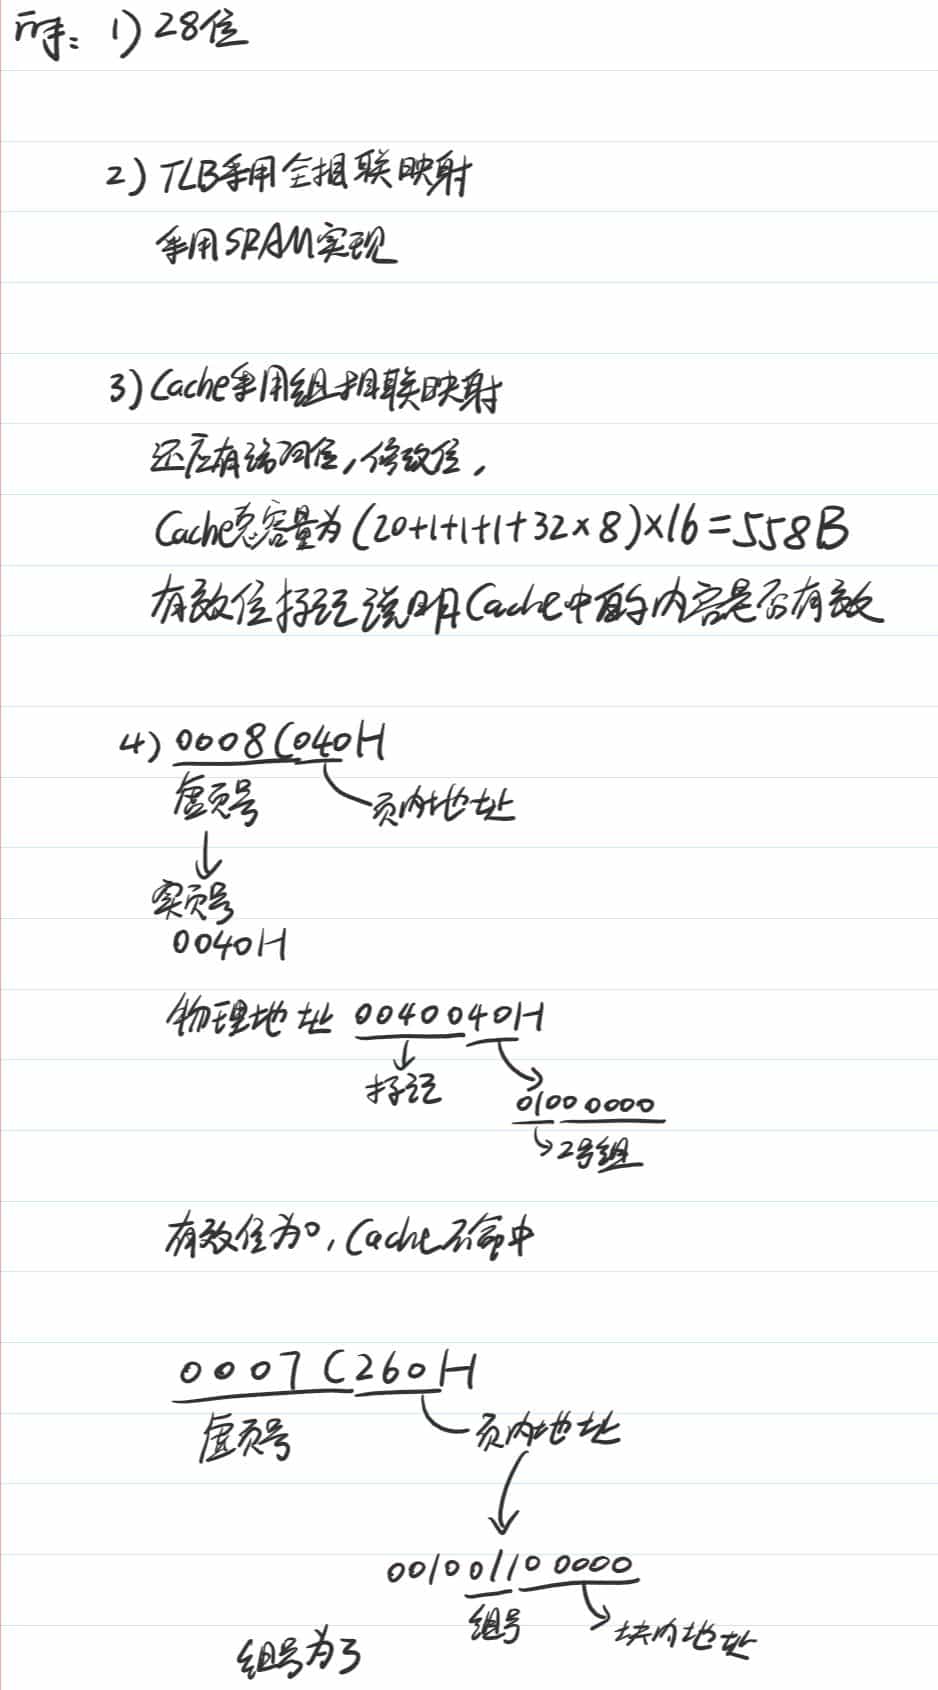 解: 1) 28位
2) TLB采用全相联映射
采用SRAM实现
3) Cache采用组相联映射
还应有访问位, 修改位,
Cache总容量为 (20+1+1+1+32×8)×16=558B
有效位标记说明Cache中的内容是否有效
4) 0008C040H
虚页号 页内地址
实页号
0040H
物理地址 0040040H
标记
0100 0000
2号组
有效位为0, Cache不命中
0007C260H
虚页号 页内地址
001001100000
组号 块内地址
组号为3